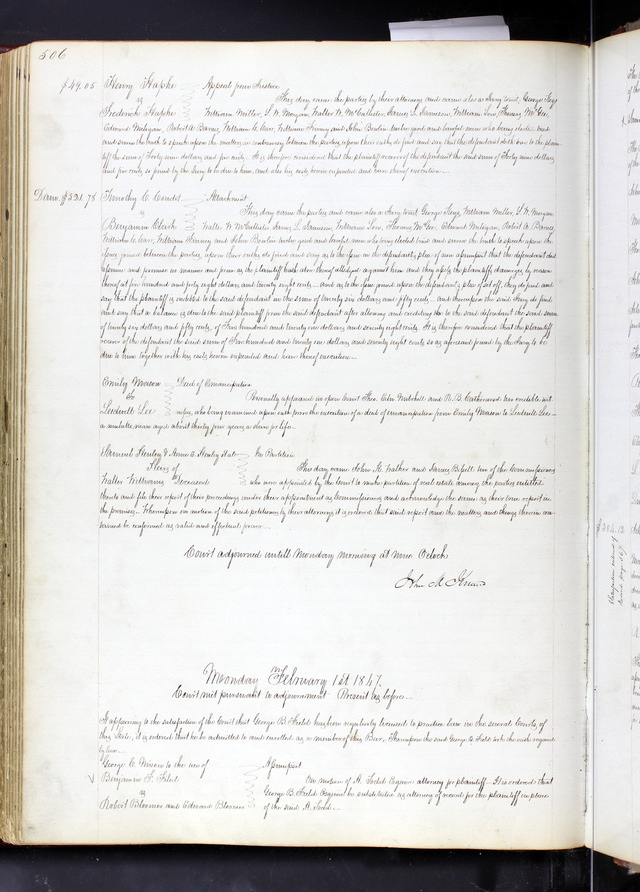 506
$49.05 Henry Hapke Appeal from Justice
vs This day came the parties by their attorneys and came also a Jury to wit, George Keys
Frederick Hapke William Miller, S. W. Morgan, Walter W. McCallister, James L. Jamieson, William Low, Thomas McGee,
Edmund Mulligan, Robert A. Barnes, William C. Carr, William Finney and John Bowlin twelve good and lawful men who being elected tried
and sworn the truth to speak upon the matters in controversy between the parties, upon their oaths do find and say that the defendant doth owe to the plain-
tiff the sum of Forty nine dollars and five cents. It is therefore considered that the plaintiff recover of the defendant the said sum of Forty nine dollars
and five cents so found by the Jury to be due to him, and also his costs herein expended and have thereof execution.
Dam. $521 78 Timothy C. Attachment
vs This day came the parties and came also a Jury to wit George Keys, William Miller, S. W. Morgan
Benjamin Clark Walter W McCallister James L. Jamieson, William Low, Thomas McGee, Edmund Mulligan, Robert A. Barnes,
William C. Carr, William Finney and John Bowlin twelve good and lawful men who being elected tried and sworn the truth to speak upon the
issues joined between the parties, upon their oaths do find and say as to the issue on the defendants plea of non assumpsit that the defendant did
assume and promise in manner and form as the plaintiff hath above thereof alledged against him and they assess the plaintiffs damages by reason
thereof at five hundred and forty eight dollars and twenty eight cents - and as to the issue joined upon the defendants plea of set off, they do find and
say that the plaintiff is indebted to the said defendant in the sum of twenty six dollars and fifty cents - and thereupon the said Jury do find
and say that a balance is due to the said plaintiff from the said defendant after allowing and crediting to the said defendant the said sum
of twenty six dollars and fifty cents, of Five hundred and twenty one dollars and seventy eight cents. It is therefore considered that the plaintiff
recover of the defendant the said sum of Five hundred and twenty one dollars and seventy eight cents so as aforesaid found by the Jury to be
due to him together with his costs herein expended and have thereof execution.
Emily Mason Deed of Emancipation
To Personally appeared in open Court Theo. and R. B. two credible wit-
Lee nesses, who being examined upon oath prove the execution of a deed of emancipation from Emily Mason to Lee -
a mulatto man aged about thirty four years a slave for life.
Samuel Henley & Anne E. Henley In Partition
Heirs of This day came John K. Walker and James two of the Commissioners
Walter Williams Deceased who were appointed by the Court to make partition of real estate among the parties entitled
thereto and file their report of their proceedings under their appointment as Commissioners and acknowledge the same as their own report in
the premises. Whereupon on motion of the said petitioners by their attorney it is ordered that said report and the matters and things therein con-
tained be confirmed as valid and effectual forever.
Court adjourned untill Monday morning at nine Oclock
John M. Krum
Monday February 1st 1847.
Court met pursuant to adjournment Present as before.
It appearing to the satisfaction of the Court that George B. Field has been regularly licensed to practice law in the several Courts, of
this State, it is ordered that he be admitted to and enrolled as a member of this Bar. Whereupon the said George B. Field took the oath required
by law.
George C. to the use of Assumpsit
Benjamin F. On motion of A. Todd Esquire attorney for plaintiff. It is ordered that
vs George B. Field Esquire be substituted as attorney of record for the plaintiff in place
Robert Bloomer and Edward Bloomer of the said A. Todd.